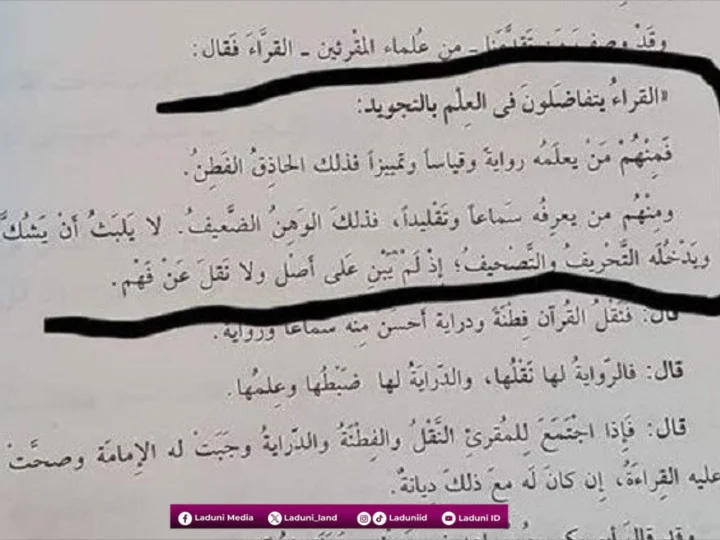 وَقَدْ وصفَ مَن تَقدَّمَنا ـ من عُلماء المقْرئين ـ القرَّاءَ فَقال:
«القراءُ يتفاضَلونَ فى العِلْم بالتجويد:
فَمِنْهُمْ مَنْ يعلَمُه روايةً وقياساً وتمييزاً فذلك الحاذِقُ الفَطِنُ.
ومِنْهُم من يعرِفُه سَماعاً وتَقْليداً، فذلكَ الوَهِنُ الضَّعيفُ. لا يَلبَثُ أنْ يَشُكَّ
ويَدْخُلَه التَّحْريفُ والتَّصْحيفُ؛ إذْ لَمْ يَبْنِ عَلى أصْل ولا نَقلَ عَنْ فَهْم.
قال: فَنَقْلُ القُرآن فِطْنَةً ودراية أحسَنُ مِنْه سَماعاً ورواية.
قال: فالرّوايةُ لها نَقْلُها، والدّرايَةُ لها ضَبْطُها وعِلمُها.
قال: فَإِذا اجْتَمَعَ لِلمُقرئِ النَّقْلُ والفِطْنَةُ والدّرايةُ وجَبَتْ له الإمامَة وصحَّتْ
عليه القِراءَةُ، إن كانَ لَه معَ ذلكَ دِيانةٌ.
Laduni Media Laduni_land Laduniid Laduni ID